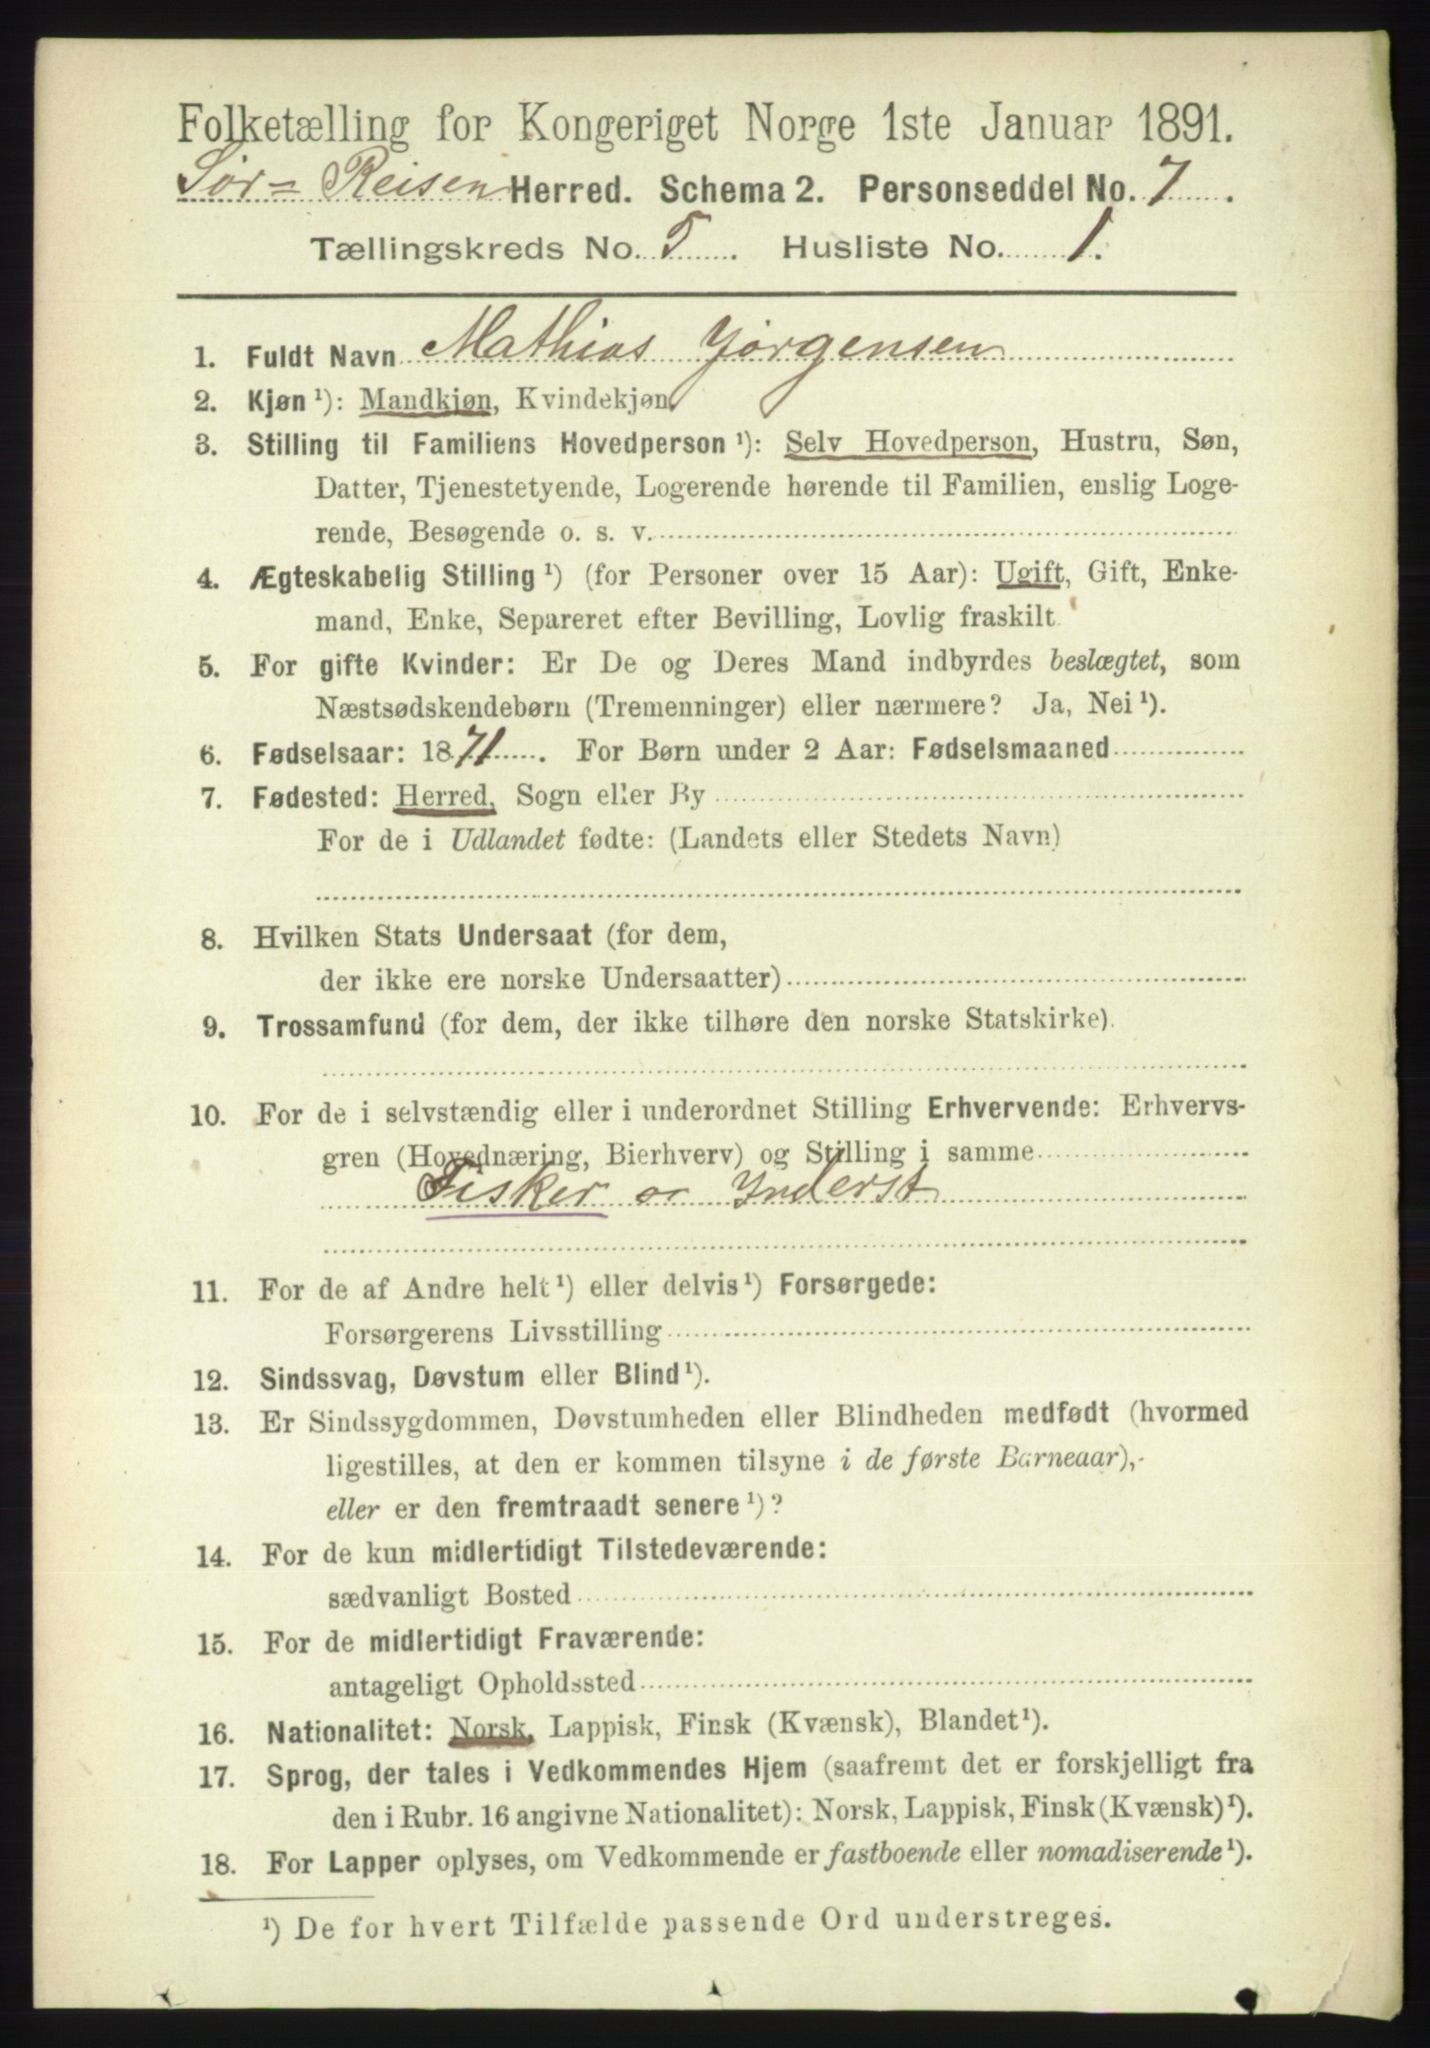 Folketælling for Kongeriget Norge 1ste Januar 1891.
Sør-Reisen Herred. Schema 2. Personseddel No. 7.
Tællingskreds No. 5. Husliste No. 1.
1. Fuldt Navn Mathias Jørgensen
2. Kjøn¹): Mandkjøn, Kvindekjøn.
3. Stilling til Familiens Hovedperson¹): Selv Hovedperson, Hustru, Søn,
Datter, Tjenestetyende, Logerende hørende til Familien, enslig Loge-
rende, Besøgende o. s. v.
4. Ægteskabelig Stilling¹) (for Personer over 15 Aar): Ugift, Gift, Enke-
mand, Enke, Separeret efter Bevilling, Lovlig fraskilt.
5. For gifte Kvinder: Er De og Deres Mand indbyrdes beslægtet, som
Næstsødskendebørn (Tremenninger) eller nærmere? Ja, Nei¹).
6. Fødselsaar: 1871. For Børn under 2 Aar: Fødselsmaaned
7. Fødested: Herred, Sogn eller By
For de i Udlandet fødte: (Landets eller Stedets Navn)
8. Hvilken Stats Undersaat (for dem,
der ikke ere norske Undersaatter)
9. Trossamfund (for dem, der ikke tilhøre den norske Statskirke).
10. For de i selvstændig eller i underordnet Stilling Erhvervende: Erhvervs-
gren (Hovednæring, Bierhverv) og Stilling i samme
Fisker og Inderst
11. For de af Andre helt¹) eller delvis¹) Forsørgede:
Forsørgerens Livsstilling
12. Sindssvag, Døvstum eller Blind¹).
13. Er Sindssygdommen, Døvstumheden eller Blindheden medfødt (hvormed
ligestilles, at den er kommen tilsyne i de første Barneaar),
eller er den fremtraadt senere¹)?
14. For de kun midlertidigt Tilstedeværende:
sædvanligt Bosted
15. For de midlertidigt Fraværende:
antageligt Opholdssted
16. Nationalitet: Norsk, Lappisk, Finsk (Kvænsk), Blandet¹).
17. Sprog, der tales i Vedkommendes Hjem (saafremt det er forskjelligt fra
den i Rubr. 16 angivne Nationalitet): Norsk, Lappisk, Finsk (Kvænsk)¹).
18. For Lapper oplyses, om Vedkommende er fastboende eller nomadiserende¹).
¹) De for hvert Tilfælde passende Ord understreges.